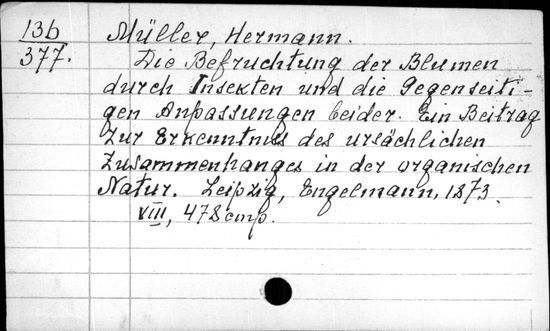 136
377.
Müller, Hermann.
Die Befruchtung der Blumen
durch Insekten und die Gegenseiti-
gen Anpassungen beider. Ein Beitrag
zur Erkenntnis des ursächlichen
Zusammenhanges in der organischen
Natur. Leipzig, Engelmann, 1873.
VIII, 478 стр.